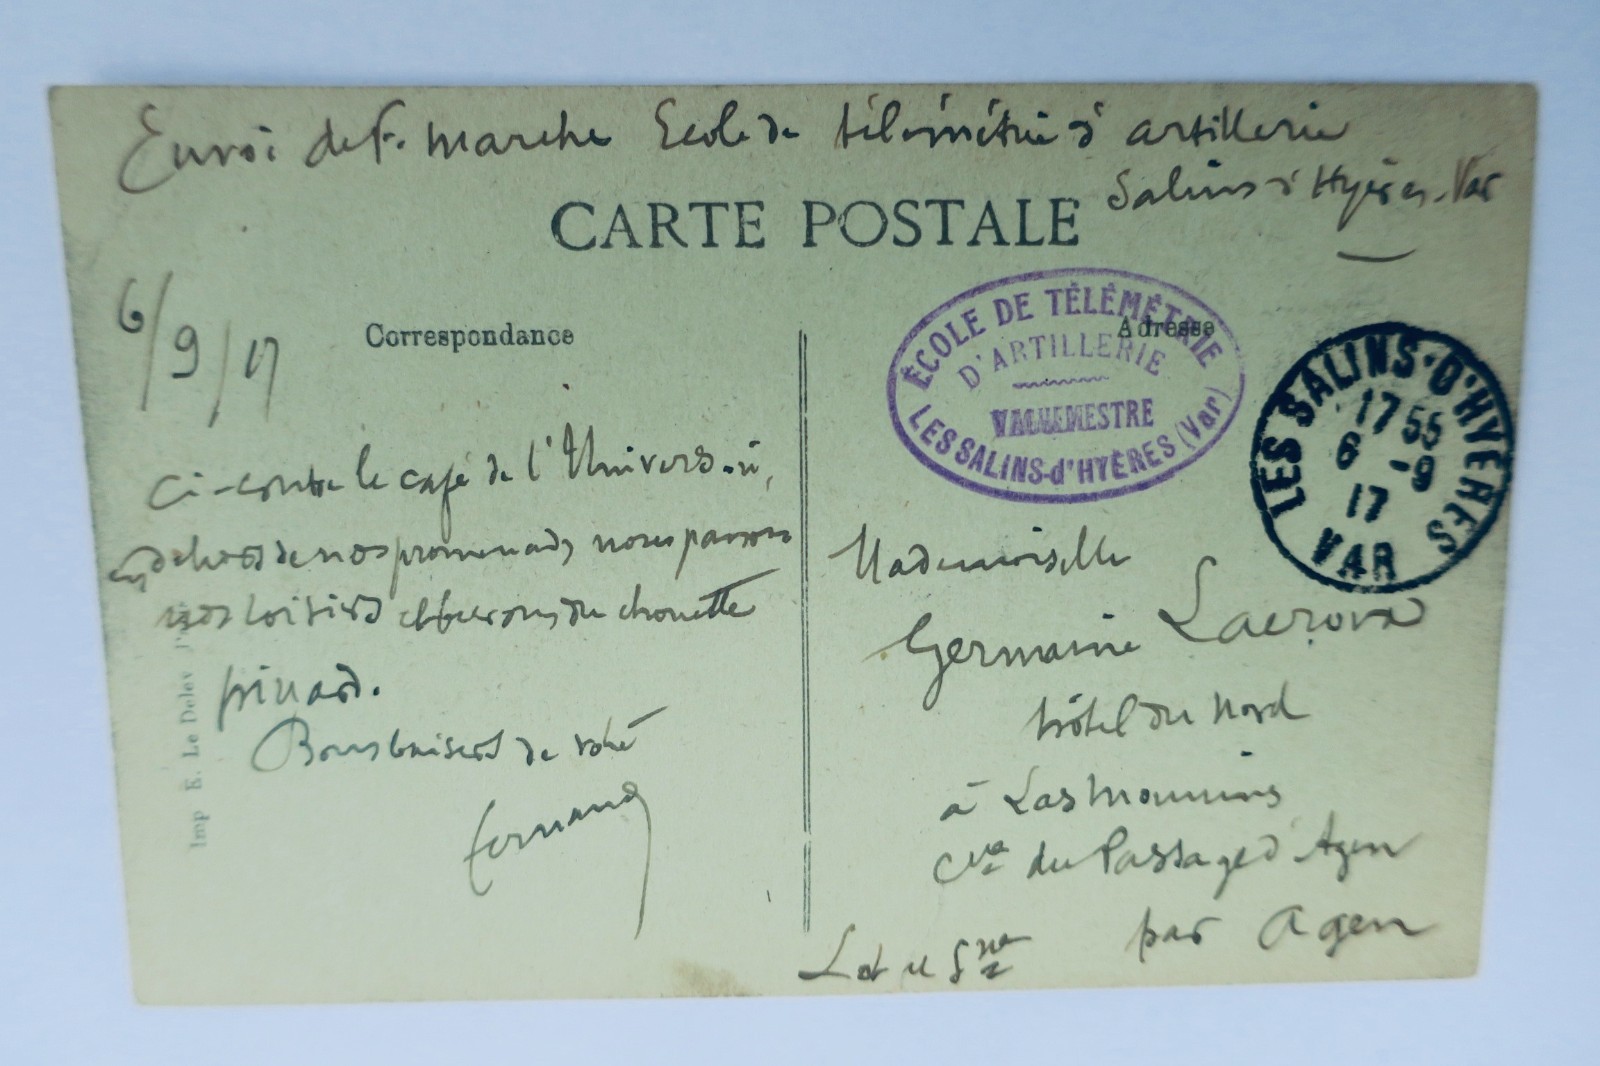 Envoi de F. Marche Ecole de télémétrie d'artillerie
Salins d'Hyères. Var
CARTE POSTALE
6/9/17
Correspondance
Adresse
ÉCOLE DE TÉLÉMÉTRIE
D'ARTILLERIE
VAGUEMESTRE
LES SALINS-d'HYÈRES (Var)
LES SALINS-D'HYÈRES
17 55
6 -9
17
VAR
Ci-contre le café de l'Univers où,
en dehors de nos promenades nous passons
nos loisirs et buvons du chouette
pinard.
Bons baisers de votre
Fernand
Mademoiselle
Germaine Lacroix
hôtel du Nord
à Las Mounins
Cne du Passage d'Agen
par Agen
Lot et Gne
Imp E. Le Deley